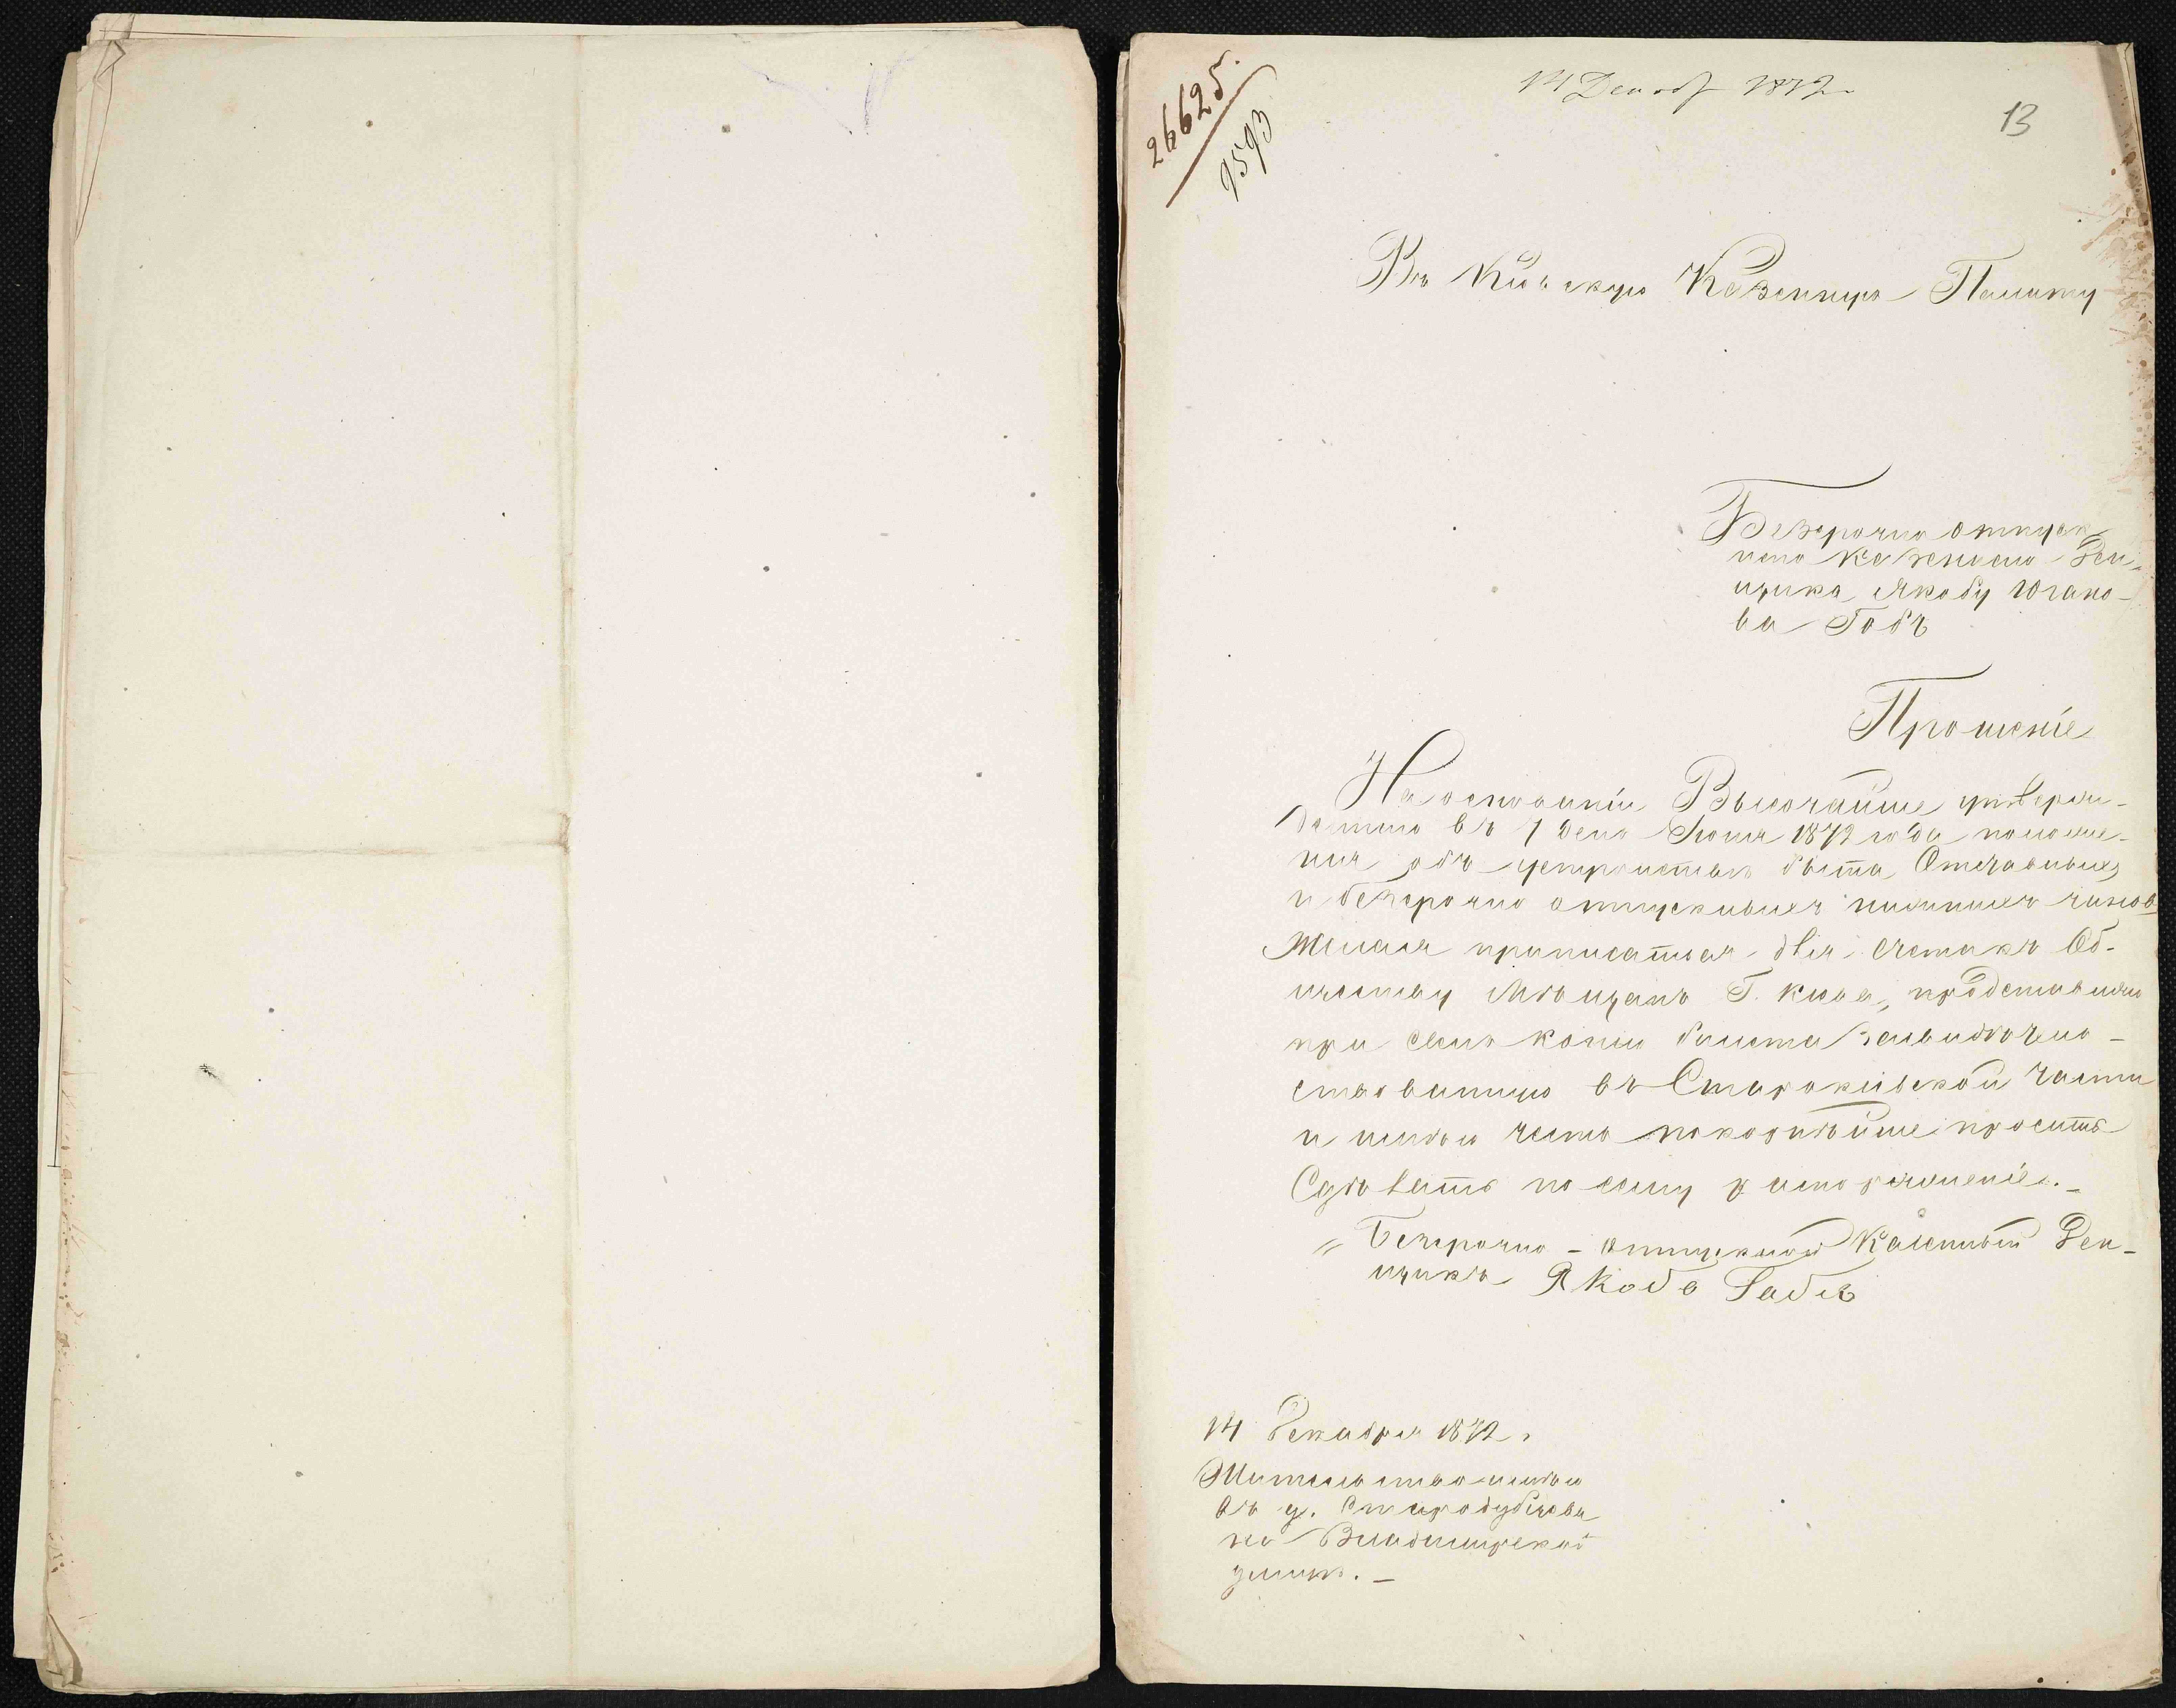 26625.
9593
14 Декаб 1872
13
Въ Кіевскую Казенную Палату
Безсрочно отпуск
ного Казенного Ден-
щика Якобу Югано-
ва Гобъ
Прошеніе
На основаніи Высочайше утвержде-
данно въ 7 день Іюня 1872 года положе-
нія объ устройствѣ быта Отставныхъ
и безсрочно отпускныхъ нижнихъ чиновъ
Желая приписаться для счета къ Об-
ществу Мѣщанъ Г. Кіева, представляю
при семъ копію билета засвидѣтельство-
ствованную въ Старокіевской части
и имѣю честь покорнѣйше просить
Сдѣлать по сему распоряженіе. -
" Безсрочно - отпускной Казенный Ден-
щикъ Якобъ Габъ
14 Декабря 1872.
Жительство имѣю
въ д. Стародубцева
на Владимірской
улицѣ. -